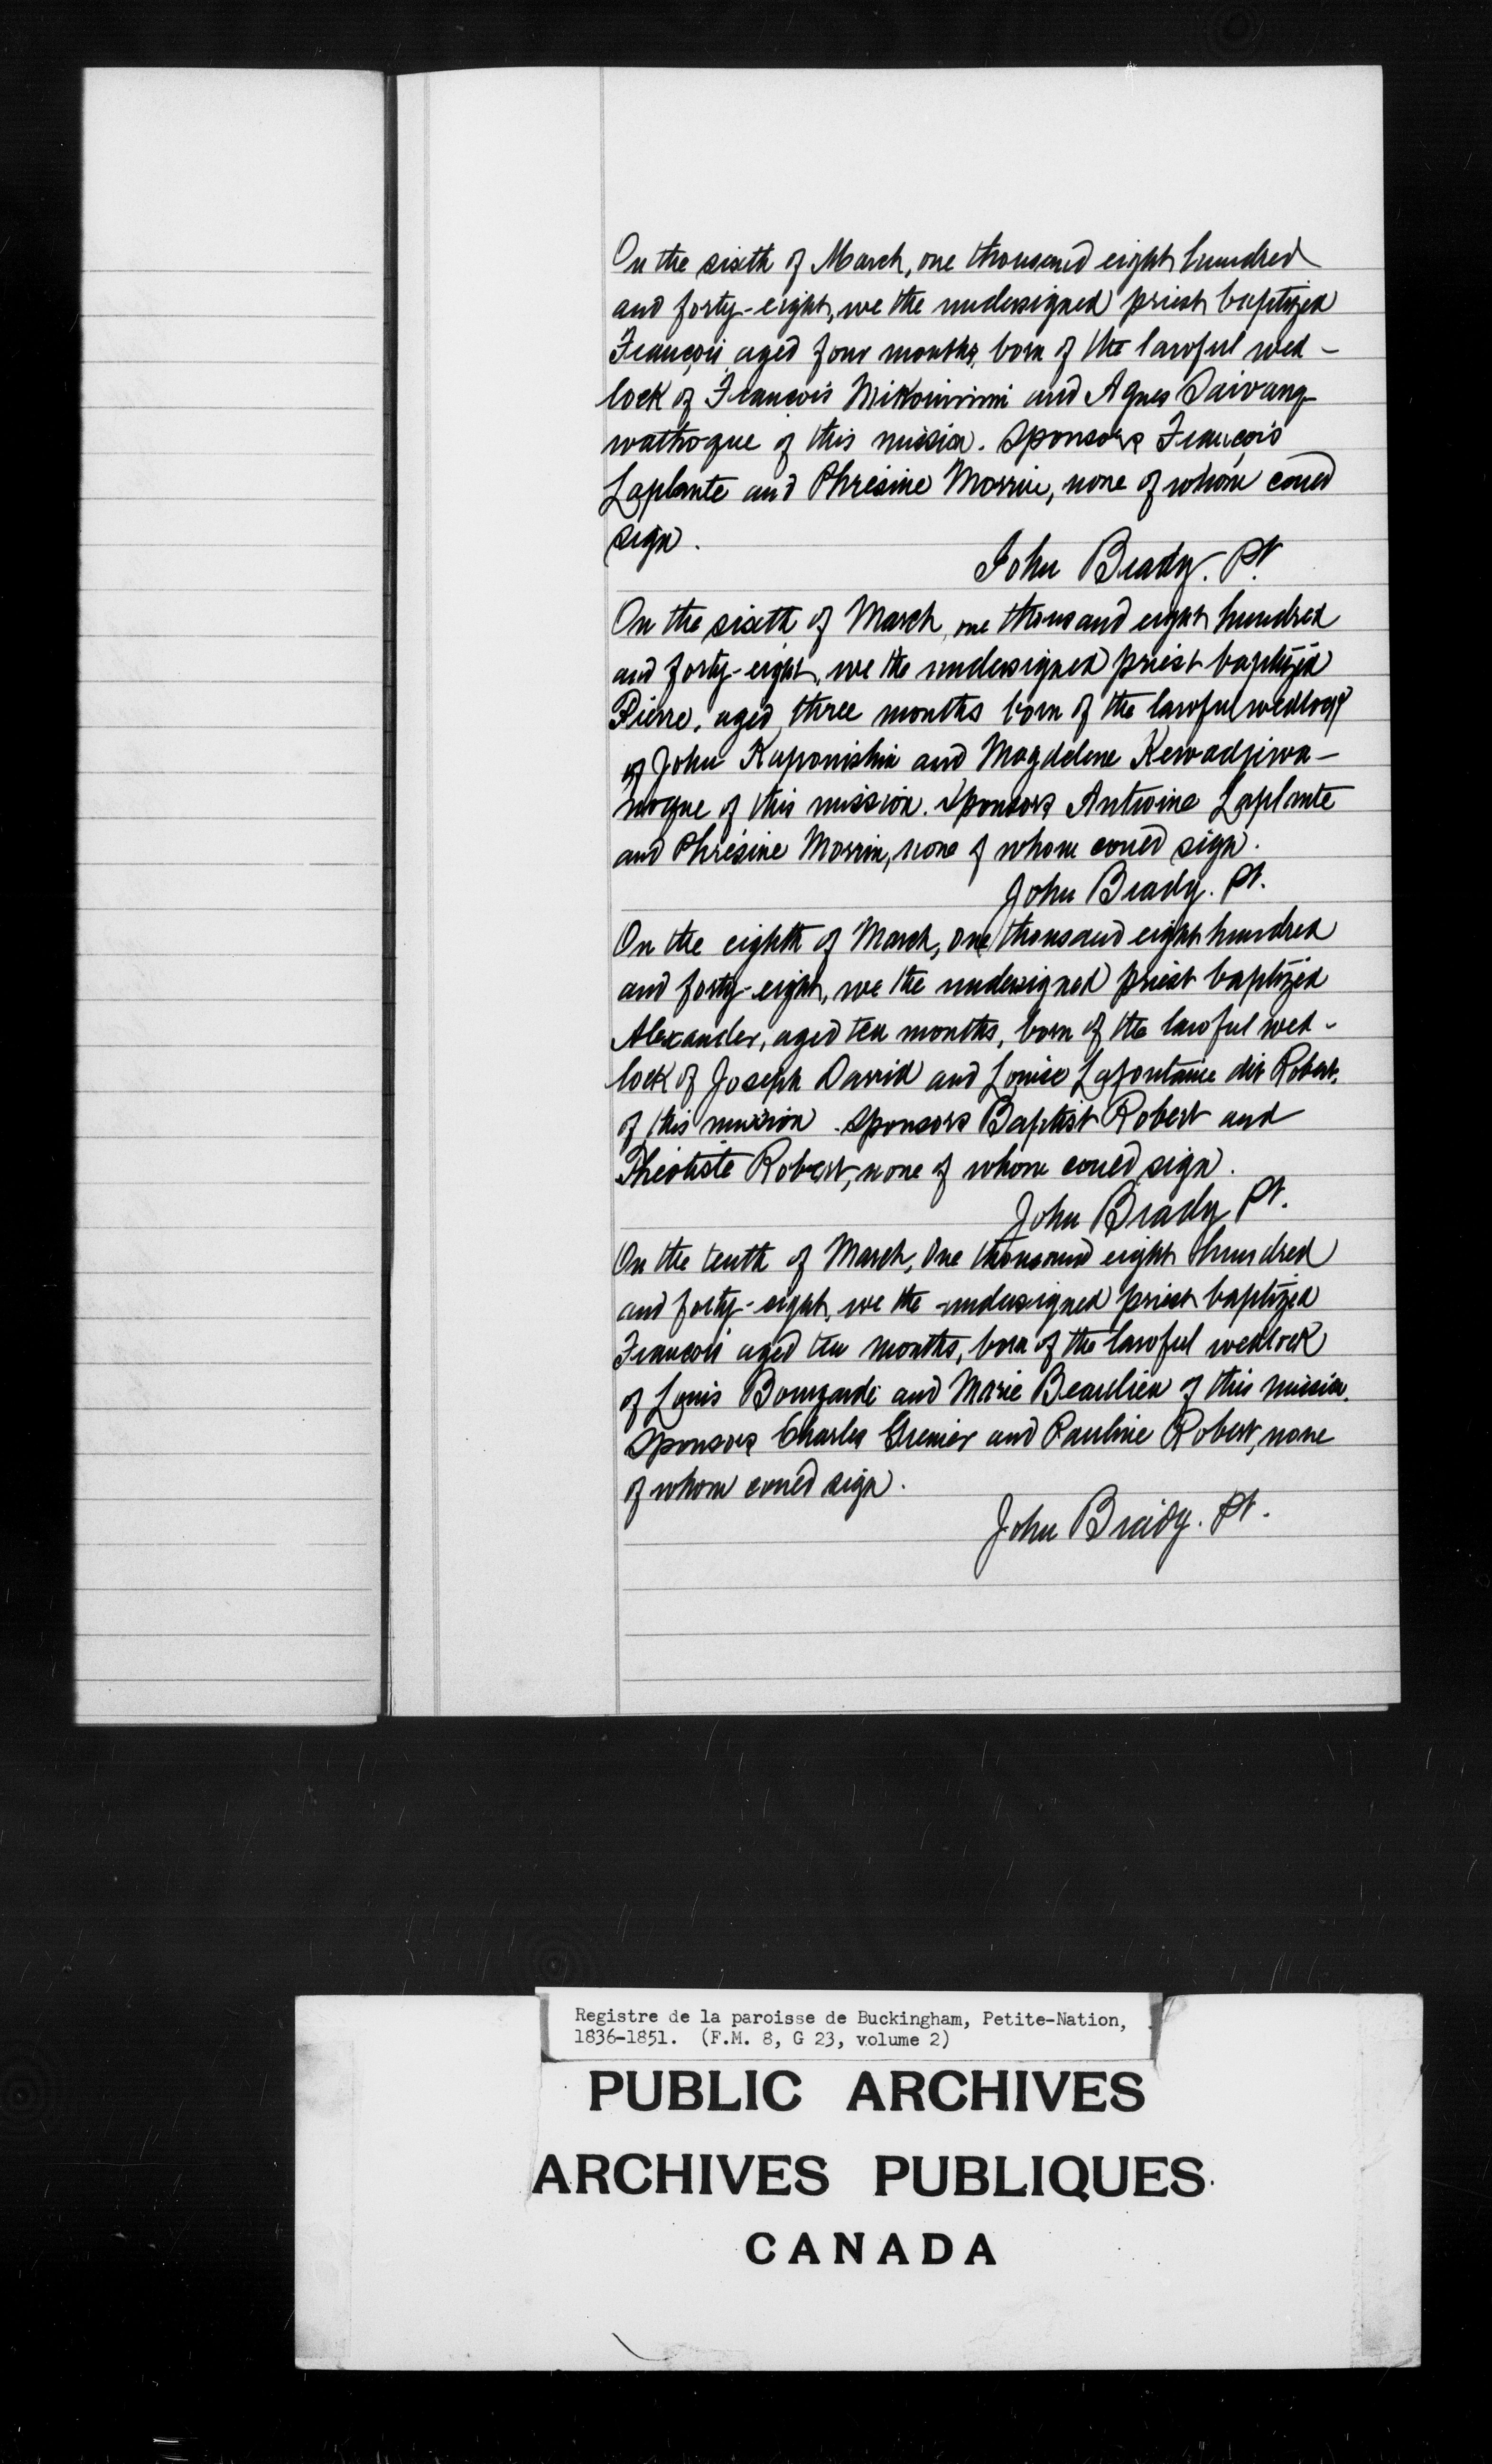 On the sixth of March, one thousand eight hundred
and forty-eight, we the undersigned priest baptized
François aged four months, born of the lawful wed-
lock of François Mikominini and Agnes Saivang-
wathoque of this mission. Sponsors François
Laplante and Phrésine Morrin, none of whom coued
sign.
John Brady. Pt.
On the sixth of March, one thousand eight hundred
and forty-eight, we the undersigned priest baptized
Pierre, aged three months born of the lawful wedlock
of John Kaponishin and Magdelene Kewadjiwa-
noque of this mission. Sponsors Antoine Laplante
and Phrésine Morrin, none of whom coued sign.
John Brady. Pt.
On the eighth of March, one thousand eight hundred
and forty-eight, we the undersigned priest baptized
Alexander, aged ten months, born of the lawful wed-
lock of Joseph David and Louise Lafontaine dit Robert,
of this mission. Sponsors Baptist Robert and
Théotiste Robert, none of whom coued sign.
John Brady Pt.
On the tenth of March, One thousand eight hundred
and forty-eight, we the undersigned priest baptized
François aged ten months, born of the lawful wedlock
of Louis and Marie Beaulieu of this mission.
Sponsors Charles Grenier and Pauline Robert, none
of whom coued sign.
John Brady. Pt.
Registre de la paroisse de Buckingham, Petite-Nation,
1836-1851. (F.M. 8, G 23, volume 2)
PUBLIC ARCHIVES
ARCHIVES PUBLIQUES
CANADA